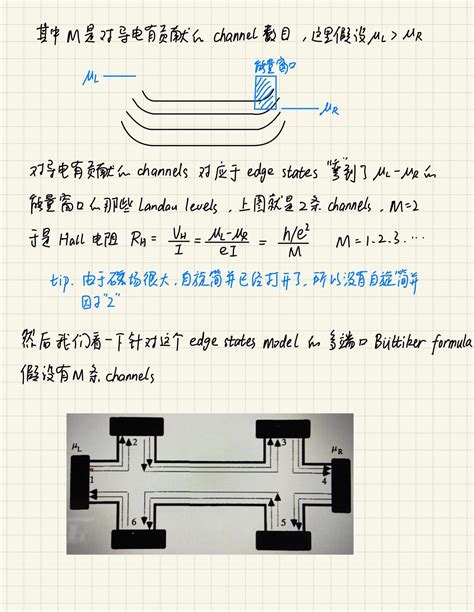 其中 M 是对导电有贡献的 channel 数目，这里假设 μL > μR
能量窗口
μL
μR
对导电有贡献的 channels 对应于 edge states "穿"到了 μL-μR 的
能量窗口的那些 Landau levels，上图就是2条 channels，M=2
于是 Hall 电阻 RH = VH/I = (μL-μR)/(eI) = (h/e²)/M M=1.2.3.…
tip. 由于磁场很大，自旋简并已经打开了，所以没有自旋简并
因子"2"
然后我们看一下针对这个 edge states model 的多端口 Büttiker formula
假设有M条 channels
μL
2
3
μR
1
4
6
5